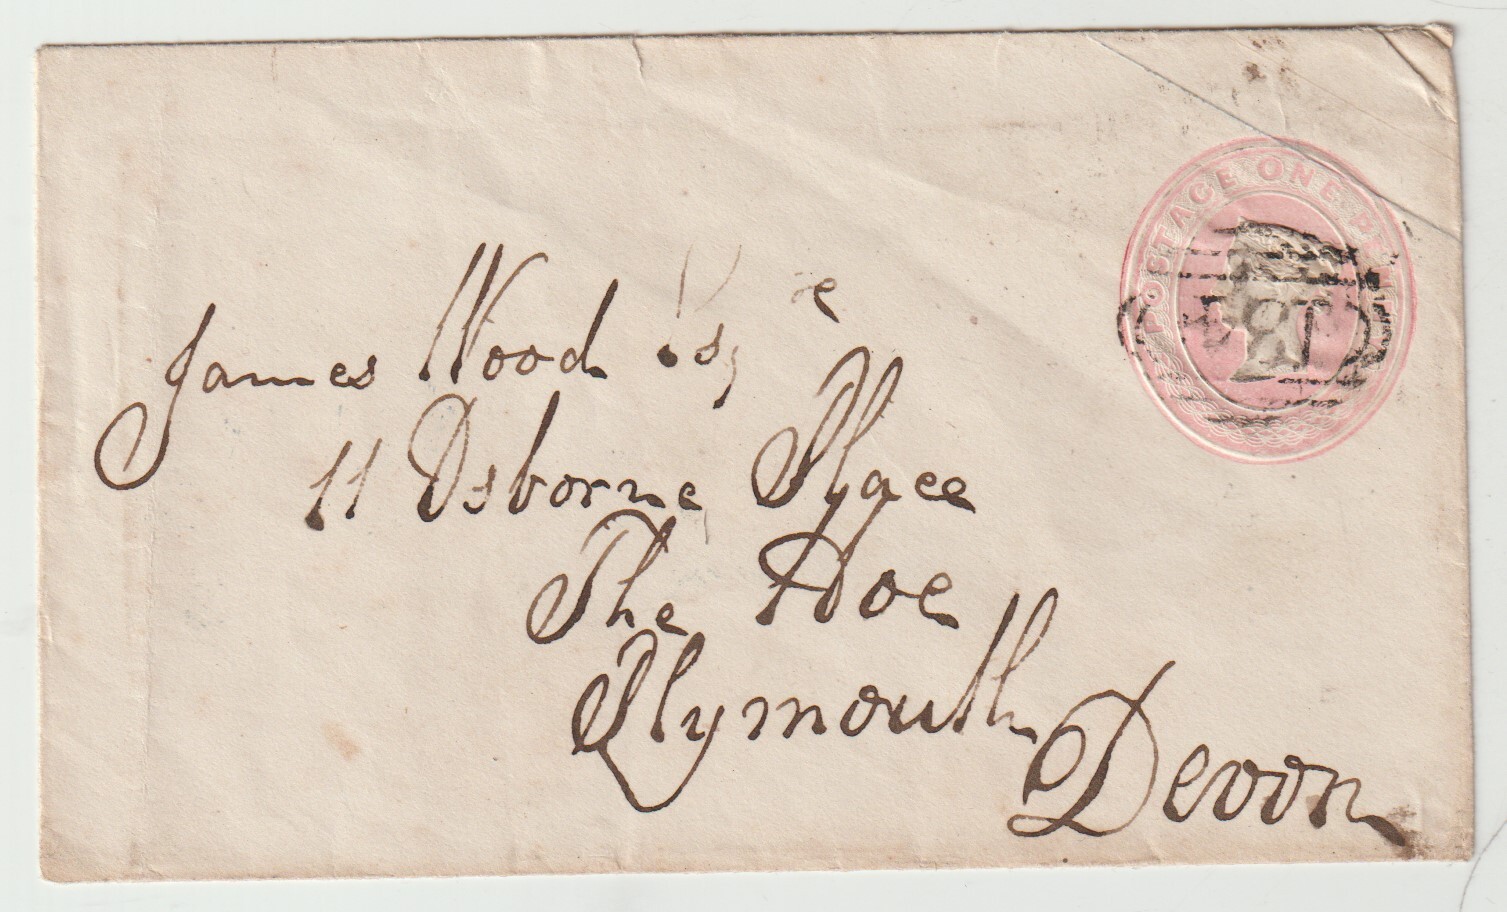 POSTAGE ONE PENNY
James Wood Esqre
11 Osborne Place
The Hoe
Plymouth
Devon